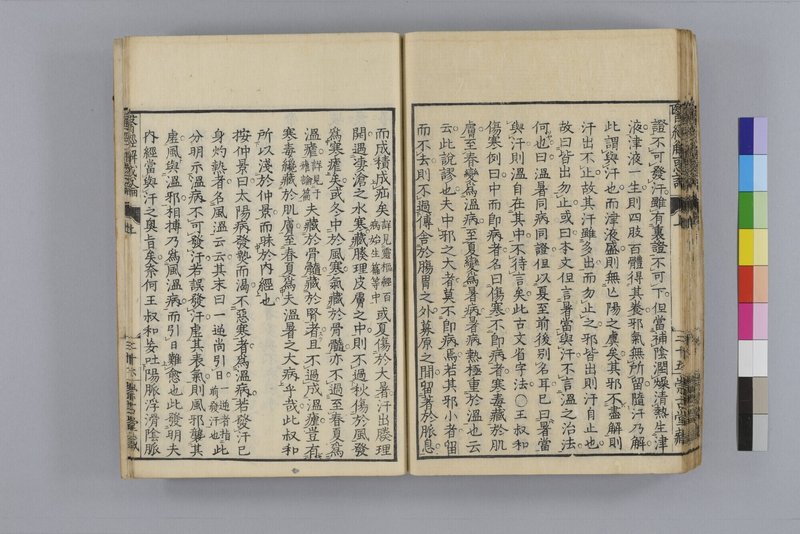 證不可發汗雖有裏證不可下但當補陰潤燥清熱生津
液津液一生則四肢百體得其養邪氣無所留隨汗乃解
此謂與汗也而津液盛則無亾陽之虞矣其邪不盡解則
汗出不止故其汗雖多出而勿止之邪皆出則汗自止也
故曰皆出勿止或曰本文但言暑當與汗不言溫之治法
何也曰溫暑同病同證但以夏至前後別名耳已曰暑當
與汗則溫自在其中不待言矣此古文省字法○王叔和
傷寒例曰中而即病者名曰傷寒不即病者寒毒藏於肌
膚至春變爲溫病至夏變爲暑病暑病熱極重於溫也云
云此說謬也夫中邪之大者莫不即病焉若其邪小者留
而不去則不過傳舍於腸胃之外募原之間留著於脈息
而成積成疝矣詳見靈樞經百病始生篇等中或夏傷於大暑汗出腠理
開遇凄滄之水寒藏腠理皮膚之中則不過秋傷於風發
爲寒瘧矣或冬中於風寒氣藏於骨髓亦不過至春夏爲
溫瘧詳見于瘧論篇夫藏於骨髓藏於腎者且不過成溫瘧豈有
寒毒纔藏於肌膚至春夏爲夫溫暑之大病乎哉此叔和
所以淺於仲景而昧於內經也
按仲景曰太陽病發熱而渴不惡寒者爲溫病若發汗已
身灼熱者名風溫云云其末曰一逆尚引日一逆者指此前發汗也此
分明示溫病不可發汗若誤發汗虛其表氣則風邪襲其
虛風與溫邪相搏乃爲風溫病而引日難愈也此發明夫
內經當與汗之奥旨矣奈何王叔和妄吐陽脈浮滑陰脈